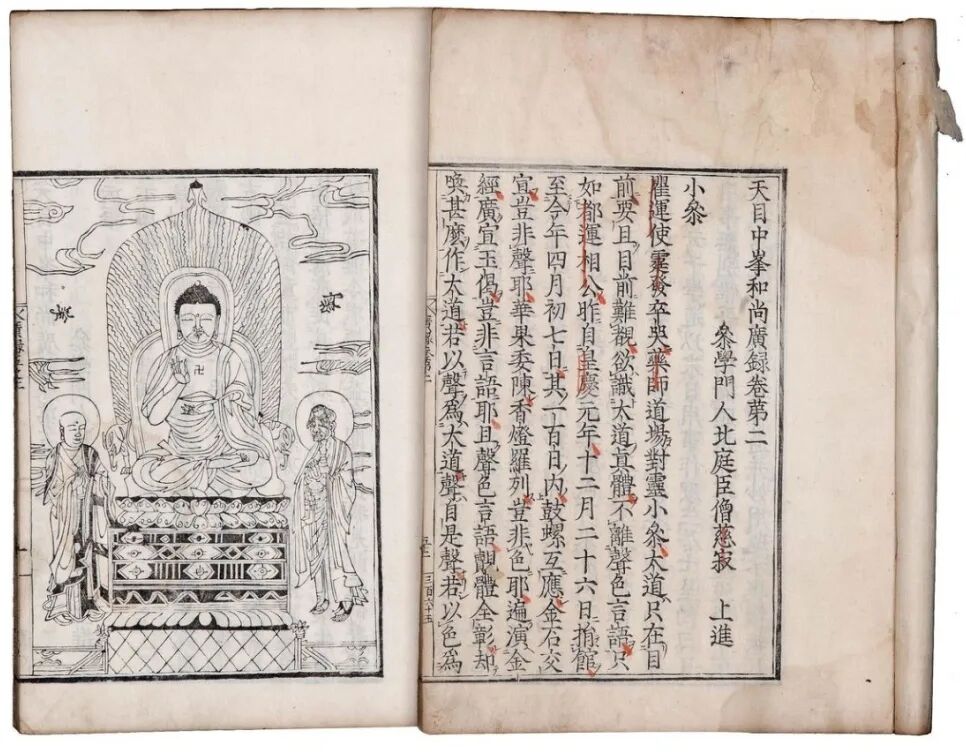 天目中峯和尚廣録卷第二
叅學門人北庭臣僧慈寂 上進
小叅
瞿運使霆發卒哭藥師道場對靈小叅太道只在目
前要且目前難覩欲識太道眞體不離聲色言語只
如都運相公昨自皇慶元年十二月二十六日捐館
至今年四月初七日其一百日内鼓螺互應金石交
宣豈非聲耶華果委陳香燈羅列豈非色耶遍演金
經廣宣玉偈豈非言語耶且聲色言語覿體全彰却
喚甚麽作太道若以聲爲太道聲自是聲若以色爲